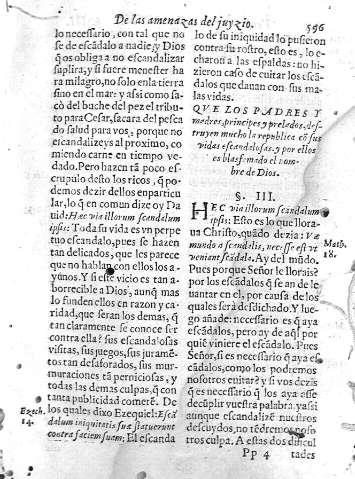 De las amenazas del juyzio.
596
lo necessario, con tal que no
se de escãdalo a nadie; y Dios
q̃ os obliga a no escandalizar
suplira, y si fuere menester ha
ra milagro, no solo en la tierra
sino en el mar: y assi como sa
cò del buche del pez el tribu
to para Cesar, sacara del pesca
do salud para vos, porque no
escandalizeys al proximo, co
miendo carne en tiempo ve
dado. Pero hazen tã poco es
crupulo desto los ricos, q̃ po-
demos dezir dellos en particu
lar, lo q̃ en comun dize oy Da
uid: Hæc via illorum scandalum
ipsis: Toda su vida es vn perpe
tuo escandalo, pues se hazen
tan delicados, que les parece
que no hablan con ellos los a-
yunos. Y si este vicio es tan a-
borrecible a Dios, aunq̃ mas
lo funden ellos en razon y ca-
ridad, que seran los demas, q̃
tan claramente se conoce ser
contra ella? sus escandalosas
visitas, sus juegos, sus juramẽ-
tos tan desaforados, sus mur-
muraciones tã perniciosas, y
todas las demas culpas, q̃ con
tanta publicidad cometẽ. De
los quales dixo Ezequiel: Escã
dalum iniquitatis suæ statuerunt
contra faciem suam: El escanda
Ezech.
14.
lo de su iniquidad lo pusieron
contra su rostro, esto es, lo e-
charon a las espaldas: no hi-
zieron caso de euitar los escã-
dalos que dauan con sus ma-
las vidas.
QVE LOS PADRES Y
madres, principes y prelados, des-
truyen mucho la republica cõ sus
vidas escandalosas, y por ellos
es blasfemado el nom-
bre de Dios.
§. III.
HÆC via illorum scandalum
ipsis: Esto es lo que llora-
ua Christo, quãdo dezia: Væ
mundo a scandalis, necesse est vt
veniant scãdala. Ay del mũdo.
Pues porque Señor le llorais?
por los escãdalos q̃ se an de le
uantar en el, por causa de los
quales serà desdichado. Y lue-
go añade: necessario es q̃ aya
escãdalos, pero ay de aq̃l por
quiẽ viniere el escãdalo. Pues
Señor, si es necessario q̃ aya es-
cãdalos, como los podremos
nosotros euitar? y si vos dezis
q̃ es necessario q̃ los aya a sse
de cũplir vuestra palabra, ya si
aunque escandalizẽ nuestros
descuydos, no tẽdremos noso
tros culpa. A estas dos dificul
Math.
18.
Pp 4 tades